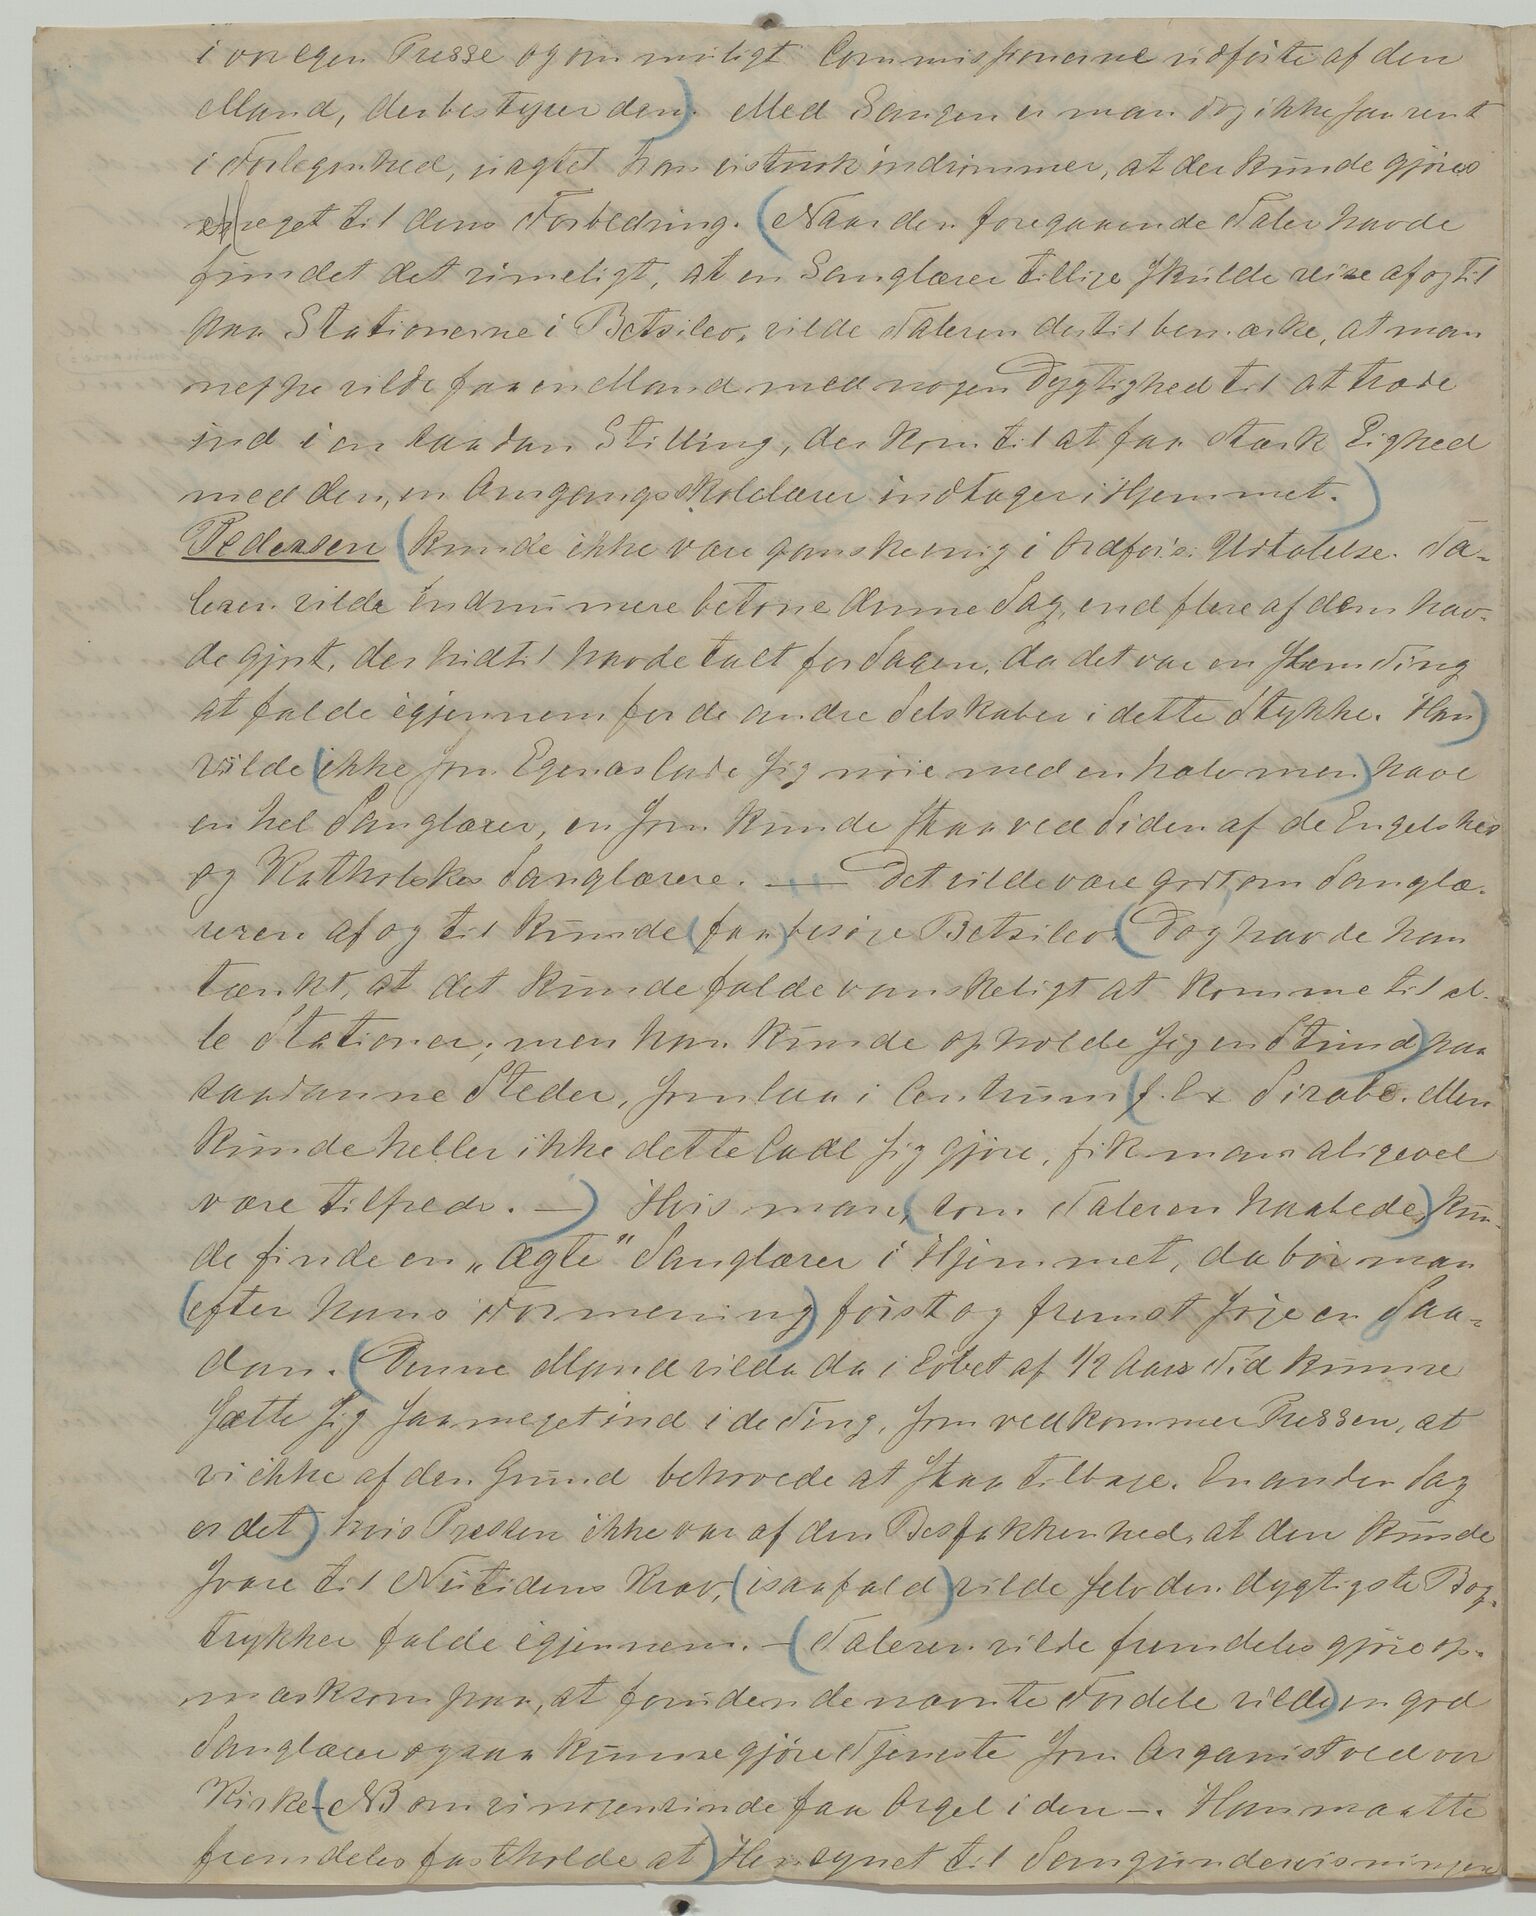 i vor egen Presse og om muligt Commissionerne udførte af den
Mand, der bestyrer den). Med Sangen er man dog ikke saa rent
i Forlegenhed, uagtet han vistnok indrømmer, at der kunde gjøres
meget til dens Forbedring. (Naar den foregaaende Taler havde
fundet det rimeligt, at en Sanglærer tillige skulde reise af og til
paa Stationerne i Betsileo, vilde Taleren dertil bemærke, at man
neppe vilde faa en Mand med nogen Dygtighed til at træde
ind i en saadan Stilling, der kom til at faa stærk Lighed
med den, en Omgangsskolelærer indtager i Hjemmet.)
Pedersen (kunde ikke være ganske enig i Ordførs. Udtalelse. Ta-
leren vilde endnu mere betone denne Sag, end flere af dem hav-
de gjort, der hidtil havde talt for Sagen, da det var en slem Ting
at falde igjennem for de andre Selskaber i dette Stykke. Han)
vilde (ikke som Egenæs lade sig nøie med en halv men) have
en hel Sanglærer, en som kunde staa ved Siden af de Engelskes
og Katholskes Sanglærere. — Det vilde være godt om Sanglæ-
reren af og til kunde (faa) besøge Betsileo. (Dog havde han
tænkt, at det kunde falde vanskeligt at komme til al-
le Stationer; men han kunde opholde sig en Stund) paa
saadanne Steder, som laa i Centrum (f. Ex Sirabe. Men
kunde heller ikke dette lade sig gjøre, fik man aligevel
være tilfreds. —) Hvis man, (som Taleren haabede,) kun-
de finde en „ægte" Sanglærer i Hjemmet, da bør man
(efter hans Formening) først og fremst søge en Saa-
dan. (Denne Mand vilde da i Løbet af 1/2 Aars Tid kunne
sætte sig saa meget ind i de Ting, som vedkommer Pressen, at
vi ikke af den Grund behøvede at staa tilbage. En anden Sag
er det) hvis Pressen ikke var af den Beskaffenhed, at den kunde
svare til Nutidens Krav, (isaafald) vilde selv den dygtigste Bog-
trykker falde igjennem. — (Taleren vilde fremdeles gjøre op-
mærksom paa, at foruden de nævnte Fordele vilde) en god
Sanglærer ogsaa kunne gjøre Tjeneste som Organist ved vor
Kirke (— NB om vi nogensinde faa Orgel i den —. Han maatte
fremdeles fastholde at) Hensynet til Sangundervisningen